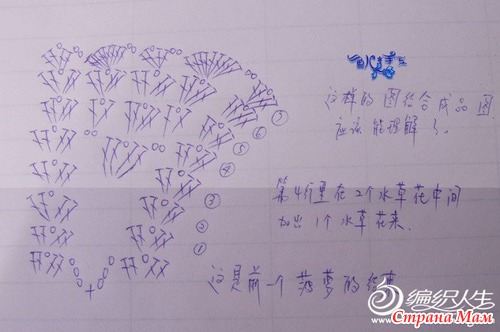 这样的图结合成品图
应该能理解了。
⑦
⑥
⑤
④
第4行里在2个水草花中间
加出1个水草花来.
③
②
①
这是前一个菠萝的结束
编织人生
Страна Мам